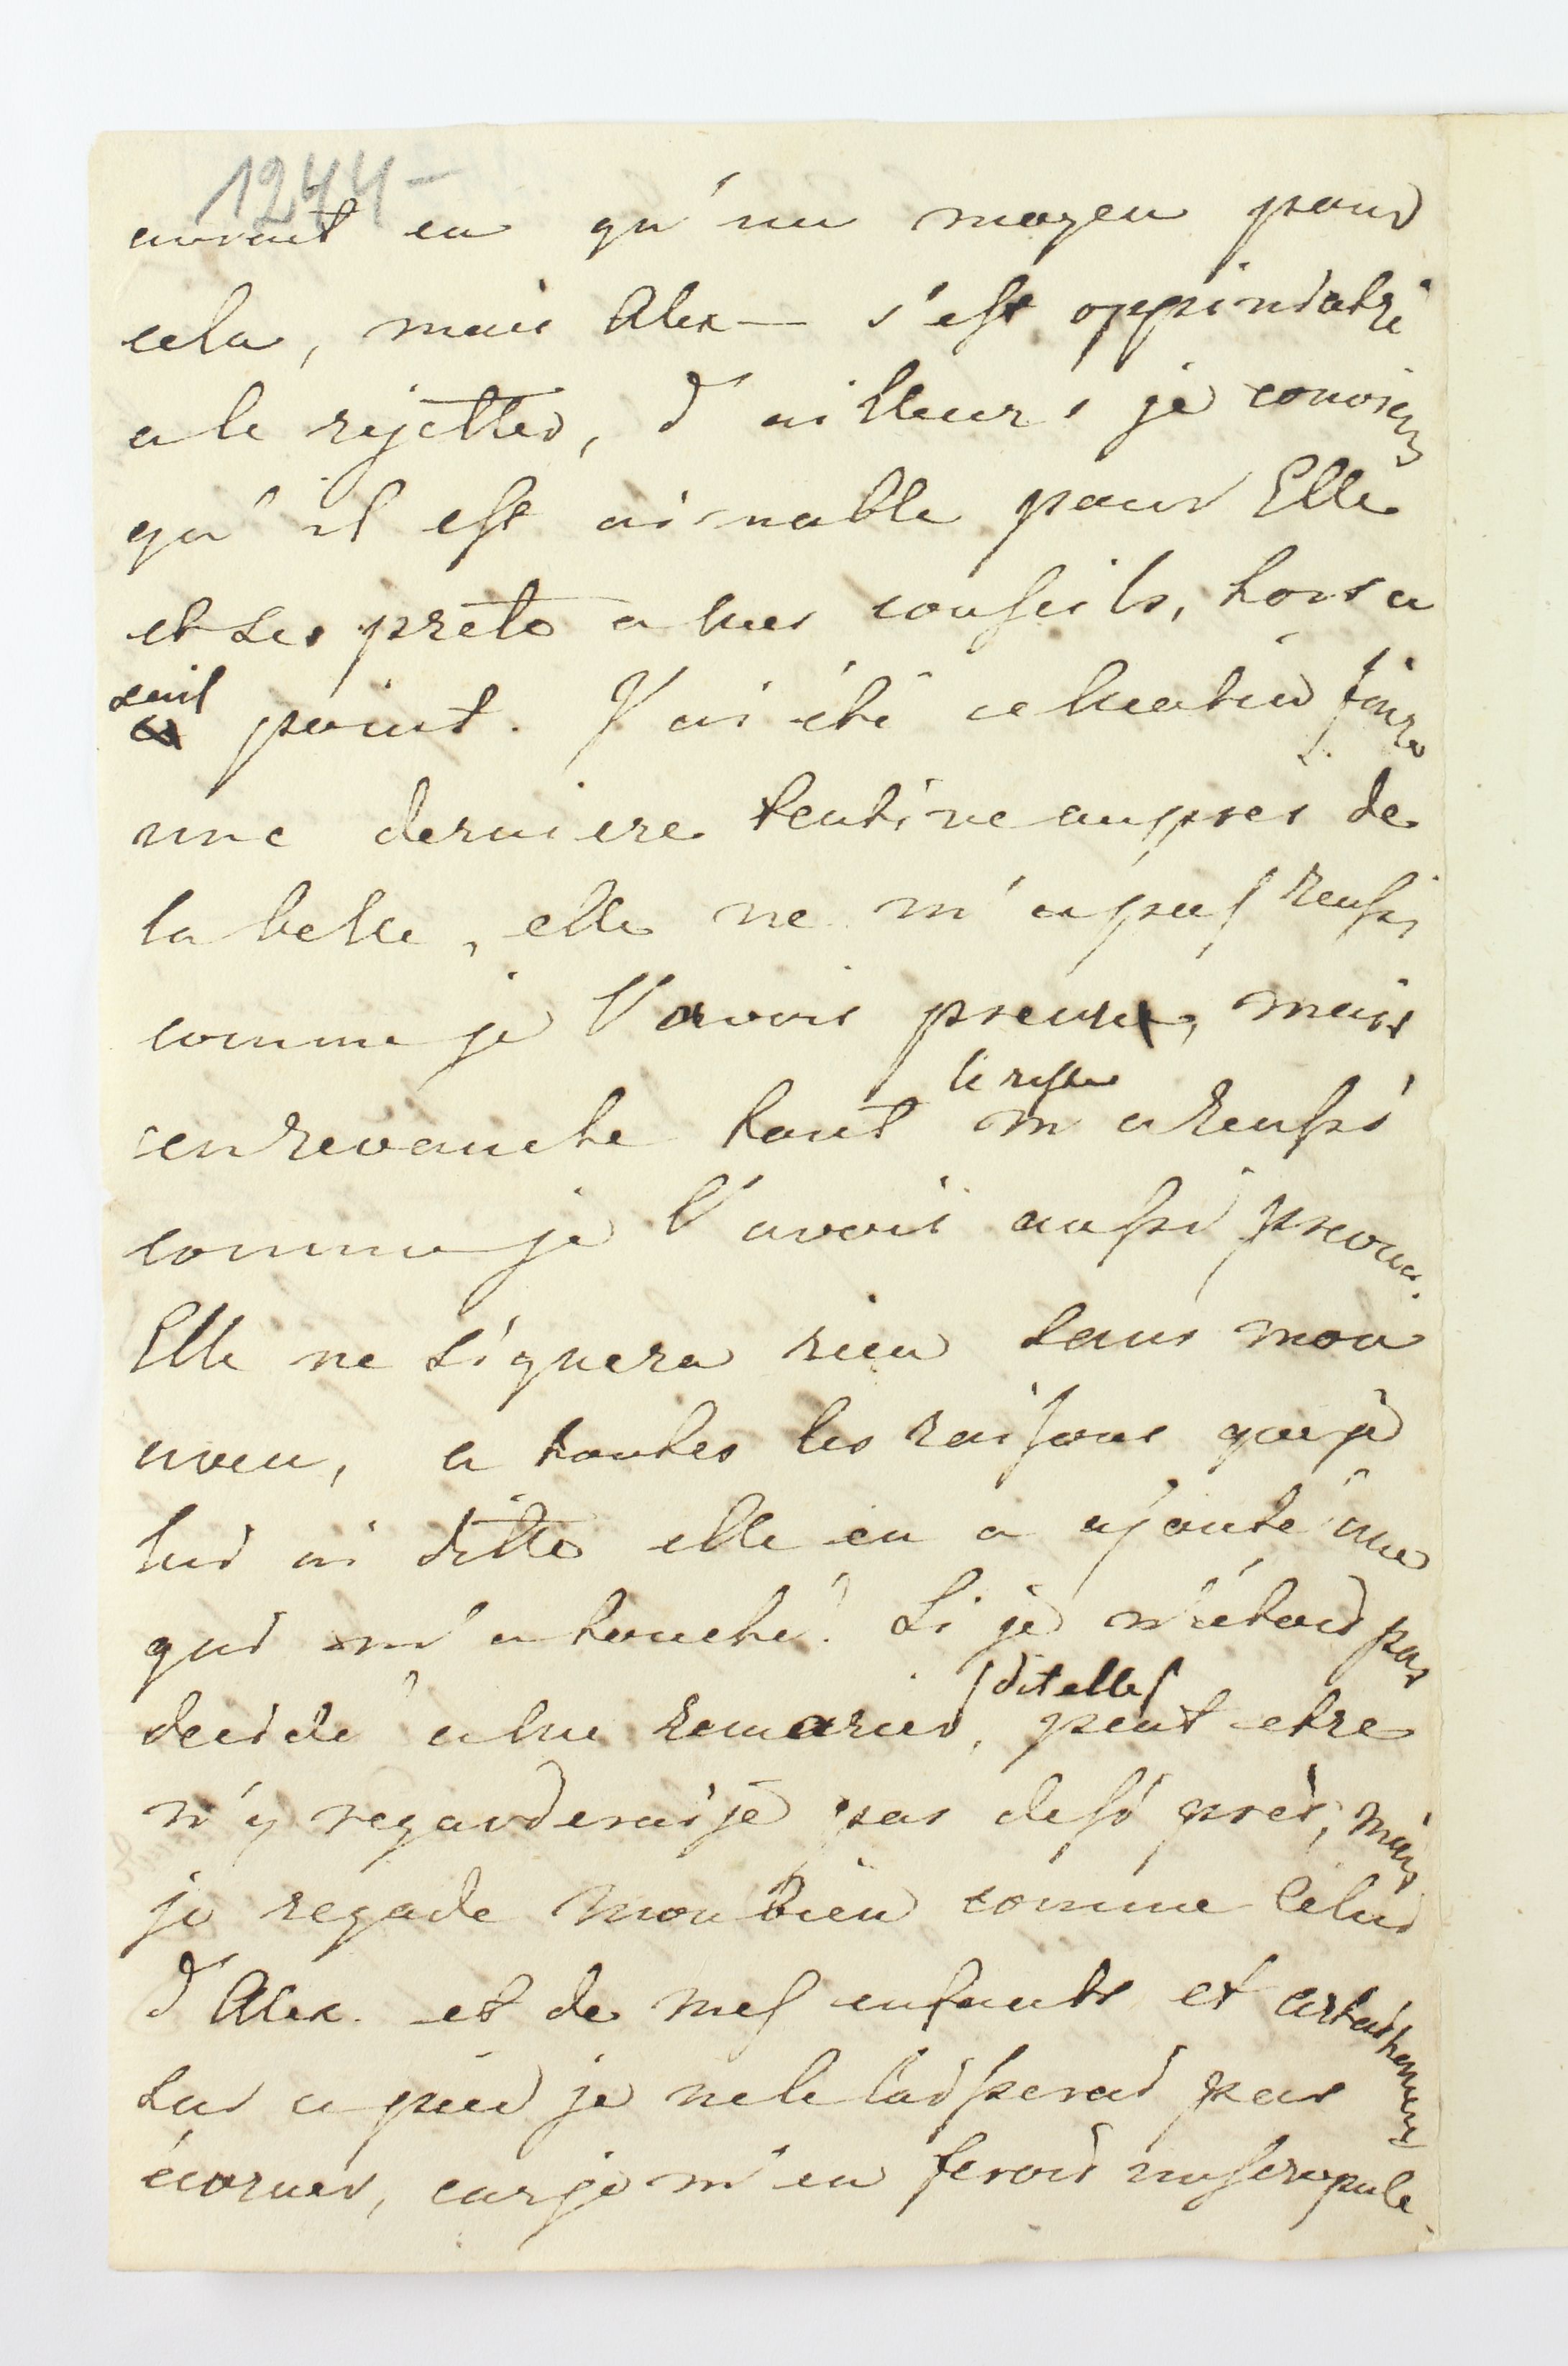 1244-
avoient eu qu'un moyen pour
cela, mais Alex— s'est oppiniatré
a le rejetter, d'ailleurs je conviens
qu'il est aimable pour Elle
et se prete a mes conseils, hors a
seul point. J'ai été ce matin faire
une derniere tentive aupres de
la belle, elle ne m'a pas reussi
comme je l'avois prevu, mais
en revanche tout le reste m'a reussi
comme je l'avois aussi prevu.
Elle ne signera rien sans mon
aveu, a toutes les raisons que je
lui ai ditte elle en a ajouté une
qui m'a touché. Si je n'étois pas
decidé a me remarier, (dit elle) peut etre
n'y regarderais je pas de si près, mais
je regade mon bien comme celui
d'Alex. et de mes enfants et certainement
sur ce pied je ne le laisserai pas
écorner, car je m'en ferois un scrupule.